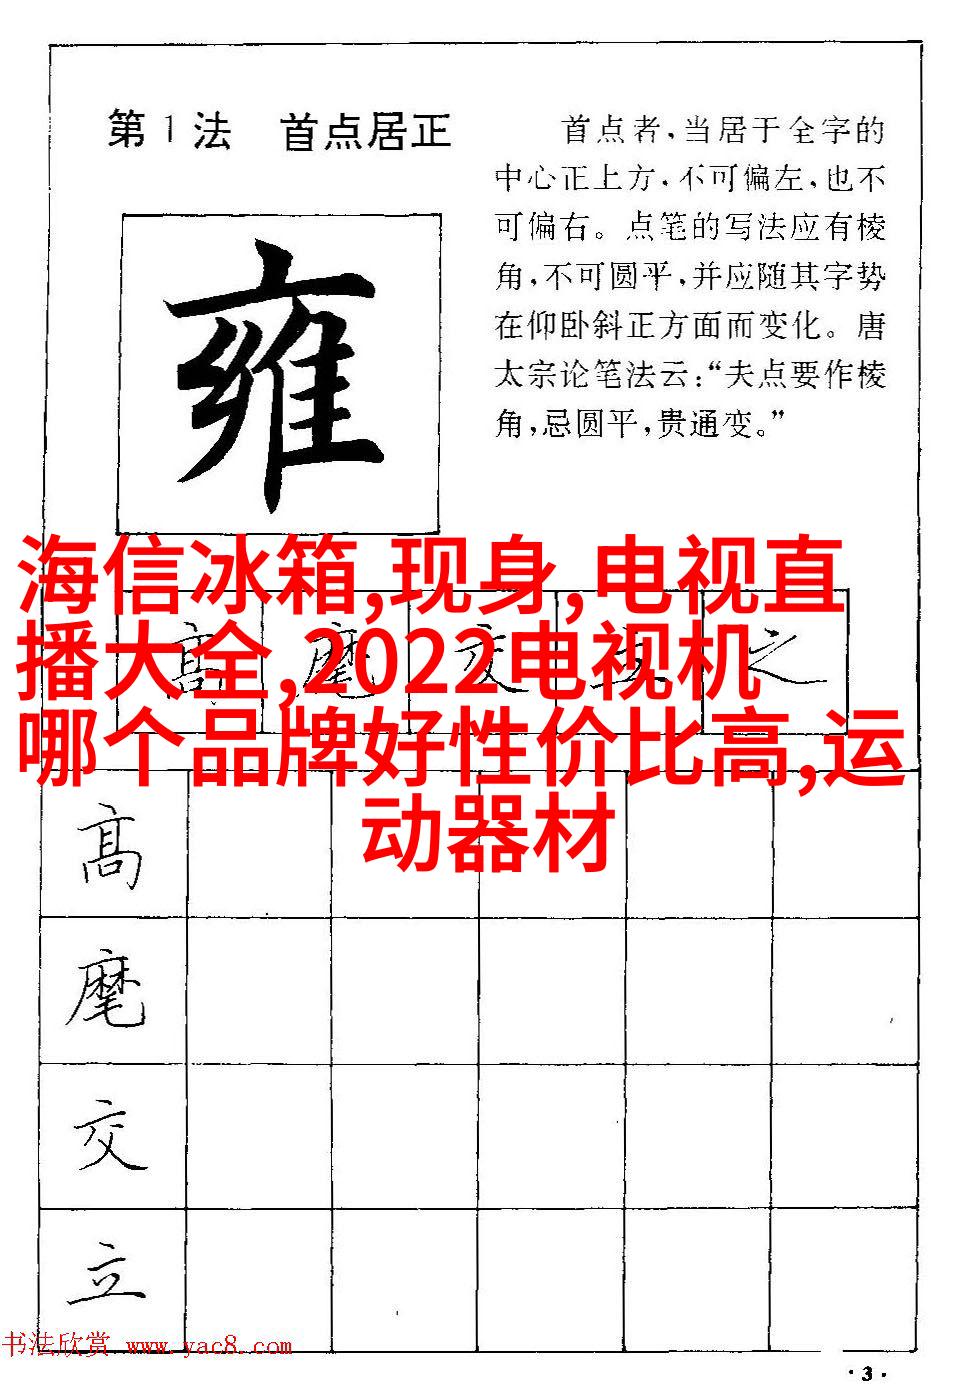 第1法 首点居正
首点者,当居于全字的
中心正上方,不可偏左,也不
可偏右。点笔的写法应有棱
角,不可圆平,并应随其字势
在仰卧斜正方面而变化。唐
太宗论笔法云:“夫点要作棱
角,忌圆平,贵通变。”
雍
海信冰箱,现身,电视直
播大全,2022电视机
哪个品牌好性价比高,运
动器材
高
麾
交
立
书法欣赏 www.yac8.com
·3·